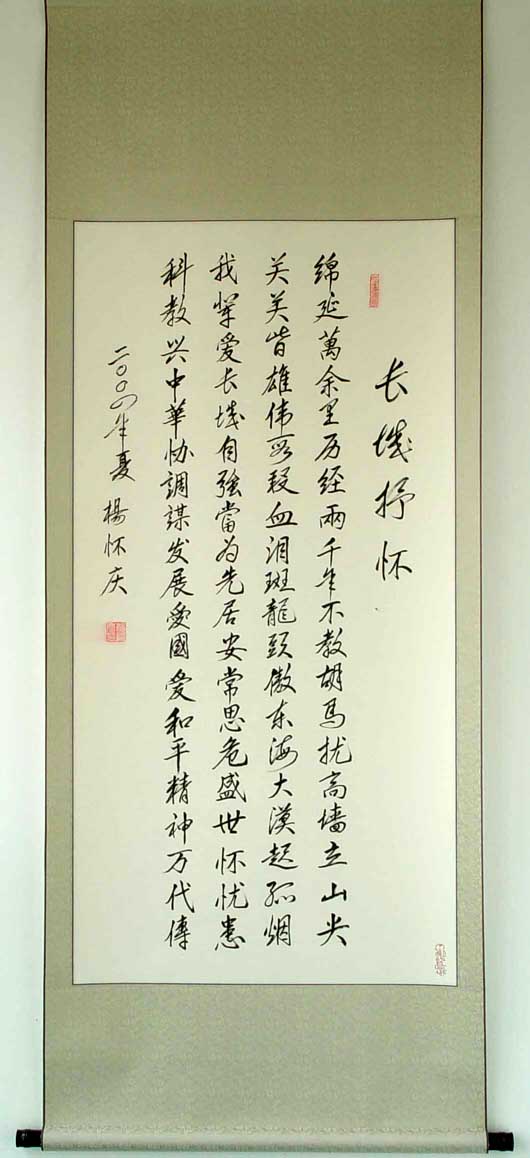 长城抒怀
绵延萬余里历经兩千年不教胡马扰高墙立山尖
关关皆雄伟段段血泪斑龍头傲东海大漠起孤烟
我辈爱长城自強當为先居安常思危盛世怀忧患
科教兴中華协調谋发展爱國爱和平精神万代傳
二〇〇四年夏 楊怀庆